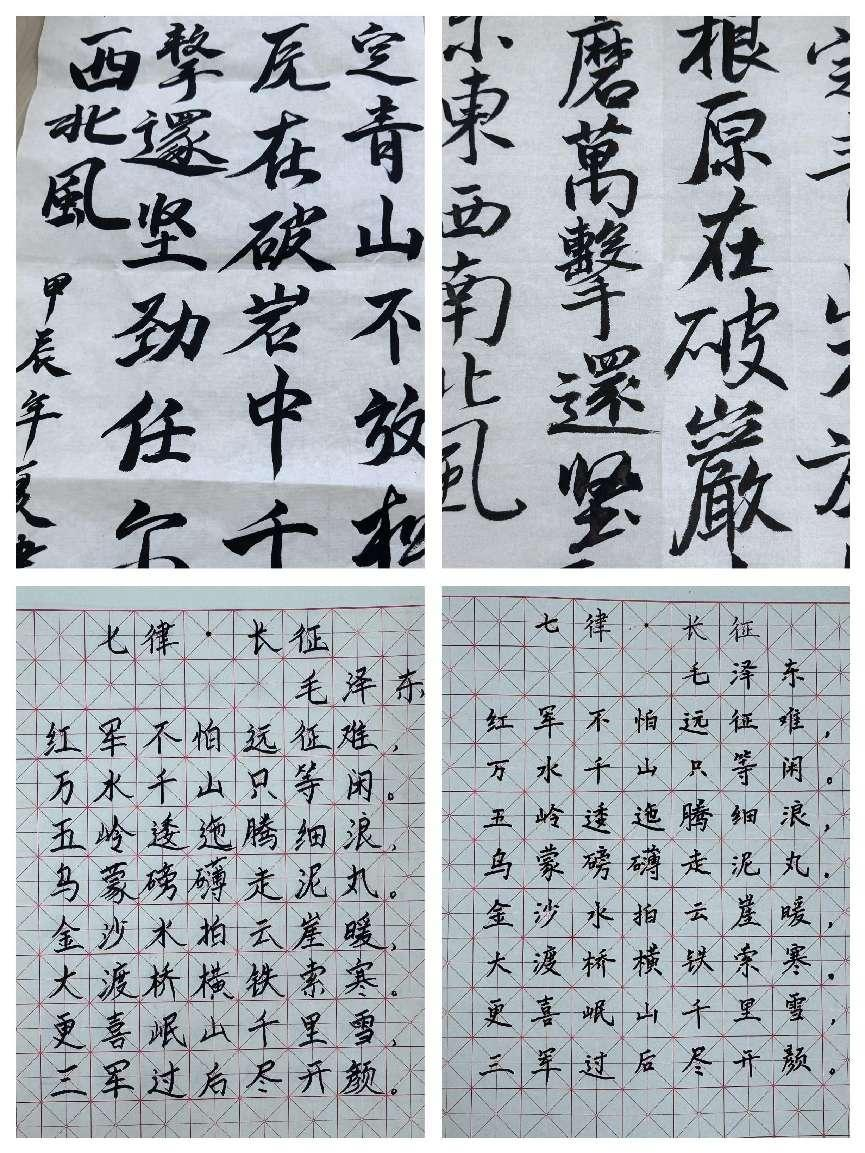 定青山不放松
原在破岩中千
擊還坚劲任尔
西北風
甲辰年夏
定青山不放
根原在破巖
磨萬擊還坚
尔東西南北風
七律·长征
毛泽东
红军不怕远征难，
万水千山只等闲。
五岭逶迤腾细浪，
乌蒙磅礴走泥丸。
金沙水拍云崖暖，
大渡桥横铁索寒。
更喜岷山千里雪，
三军过后尽开颜。
七律·长征
毛泽东
红军不怕远征难，
万水千山只等闲。
五岭逶迤腾细浪，
乌蒙磅礴走泥丸。
金沙水拍云崖暖，
大渡桥横铁索寒。
更喜岷山千里雪，
三军过后尽开颜。